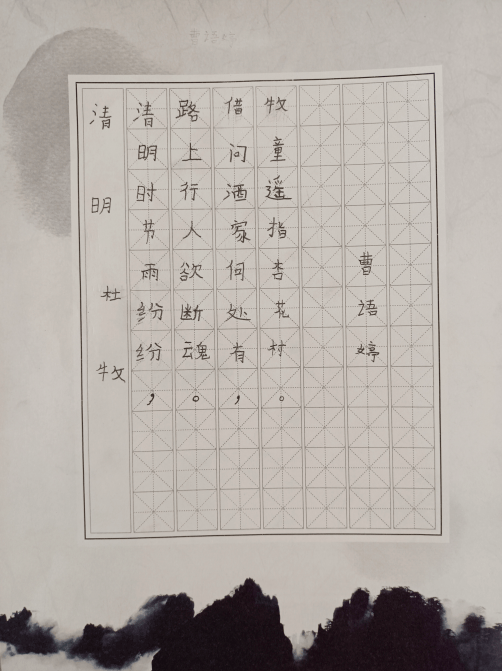 清明 杜牧
清明时节雨纷纷，
路上行人欲断魂。
借问酒家何处有，
牧童遥指杏花村。
曹语婷